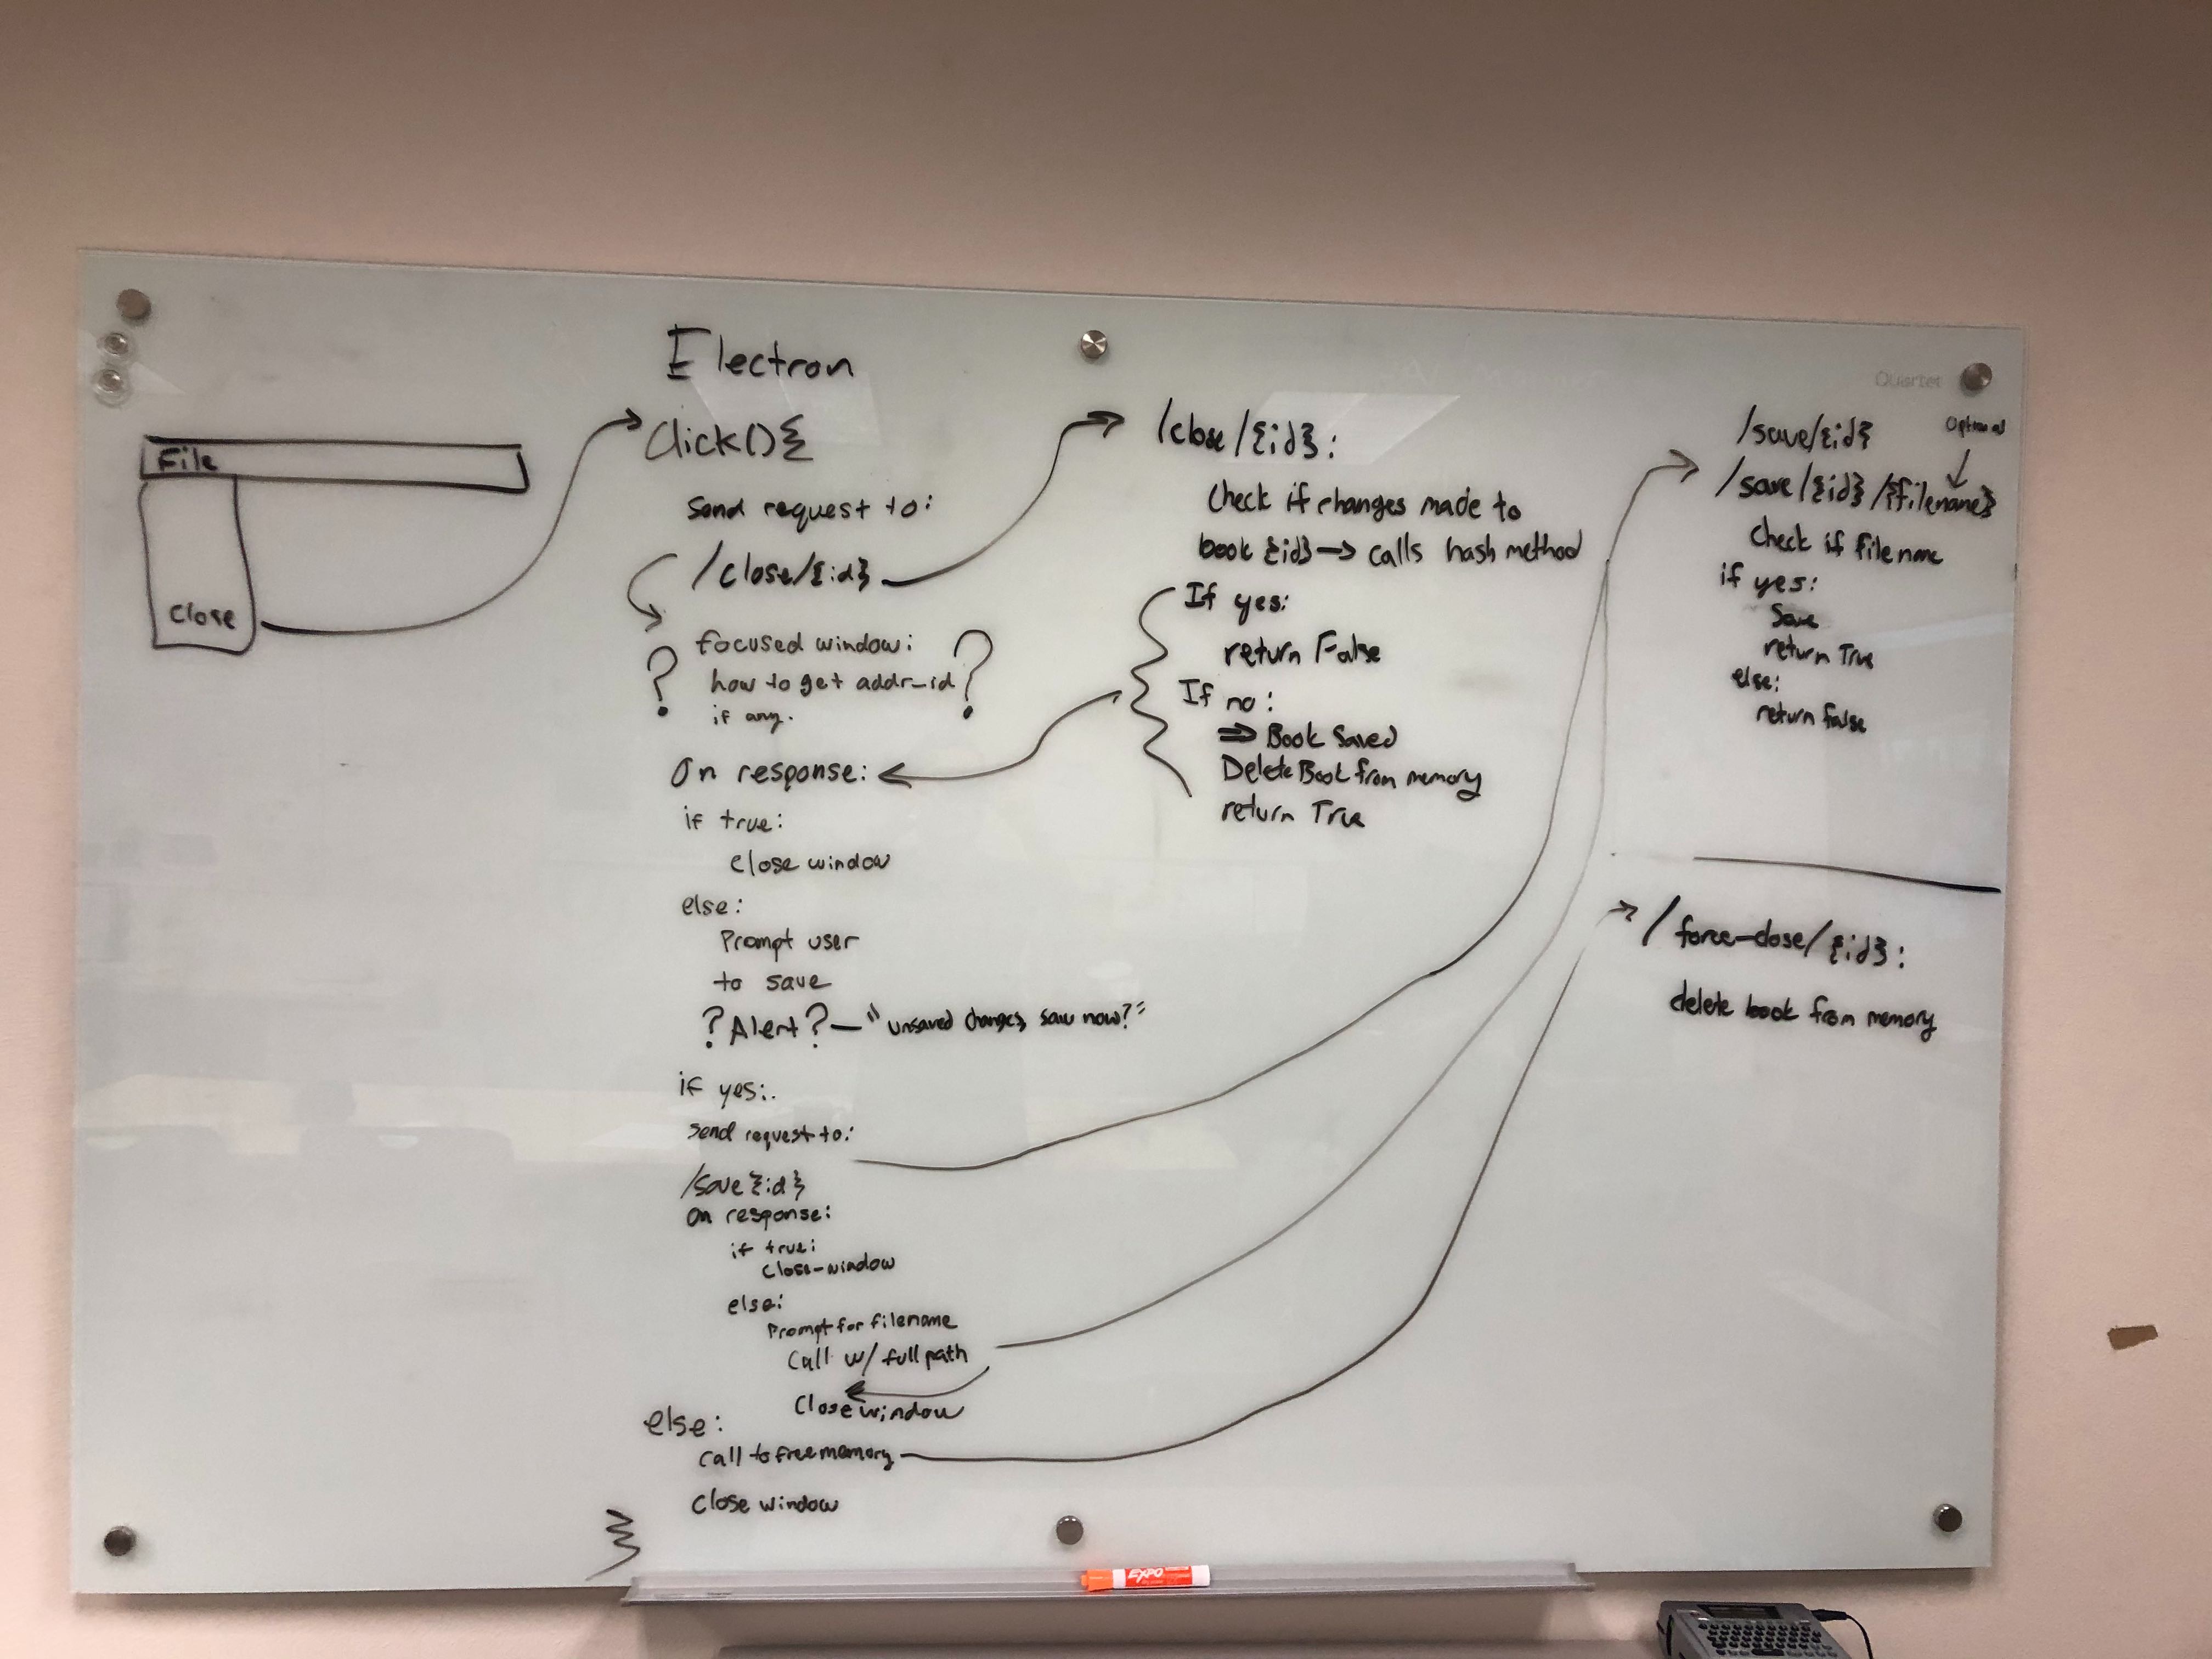 File
Close
Electron
Click(){
Send request to:
/close/{id}
? focused window: ?
how to get addr_id
if any.
On response:
if true:
close window
else:
Prompt user
to save
? Alert ? — "unsaved changes, save now?"
if yes:
send request to:
/save {id}
on response:
if true:
close-window
else:
Prompt for filename
Call w/ full path
Close window
else:
call to free memory
close window
}
/close/{id}:
Check if changes made to
book {id} → calls hash method
If yes:
return False
If no:
⇒ Book Saved
Delete Book from memory
return True
Quartet
/save/{id}
Optional
/save/{id}/{filename}
Check if filename
if yes:
Save
return True
else:
return false
/force-close/{id}:
delete book from memory
EXPO